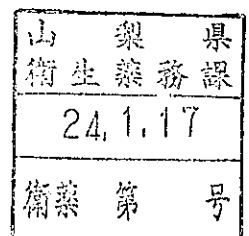 山梨県
衛生薬務課
24.1.17
衛薬第 号